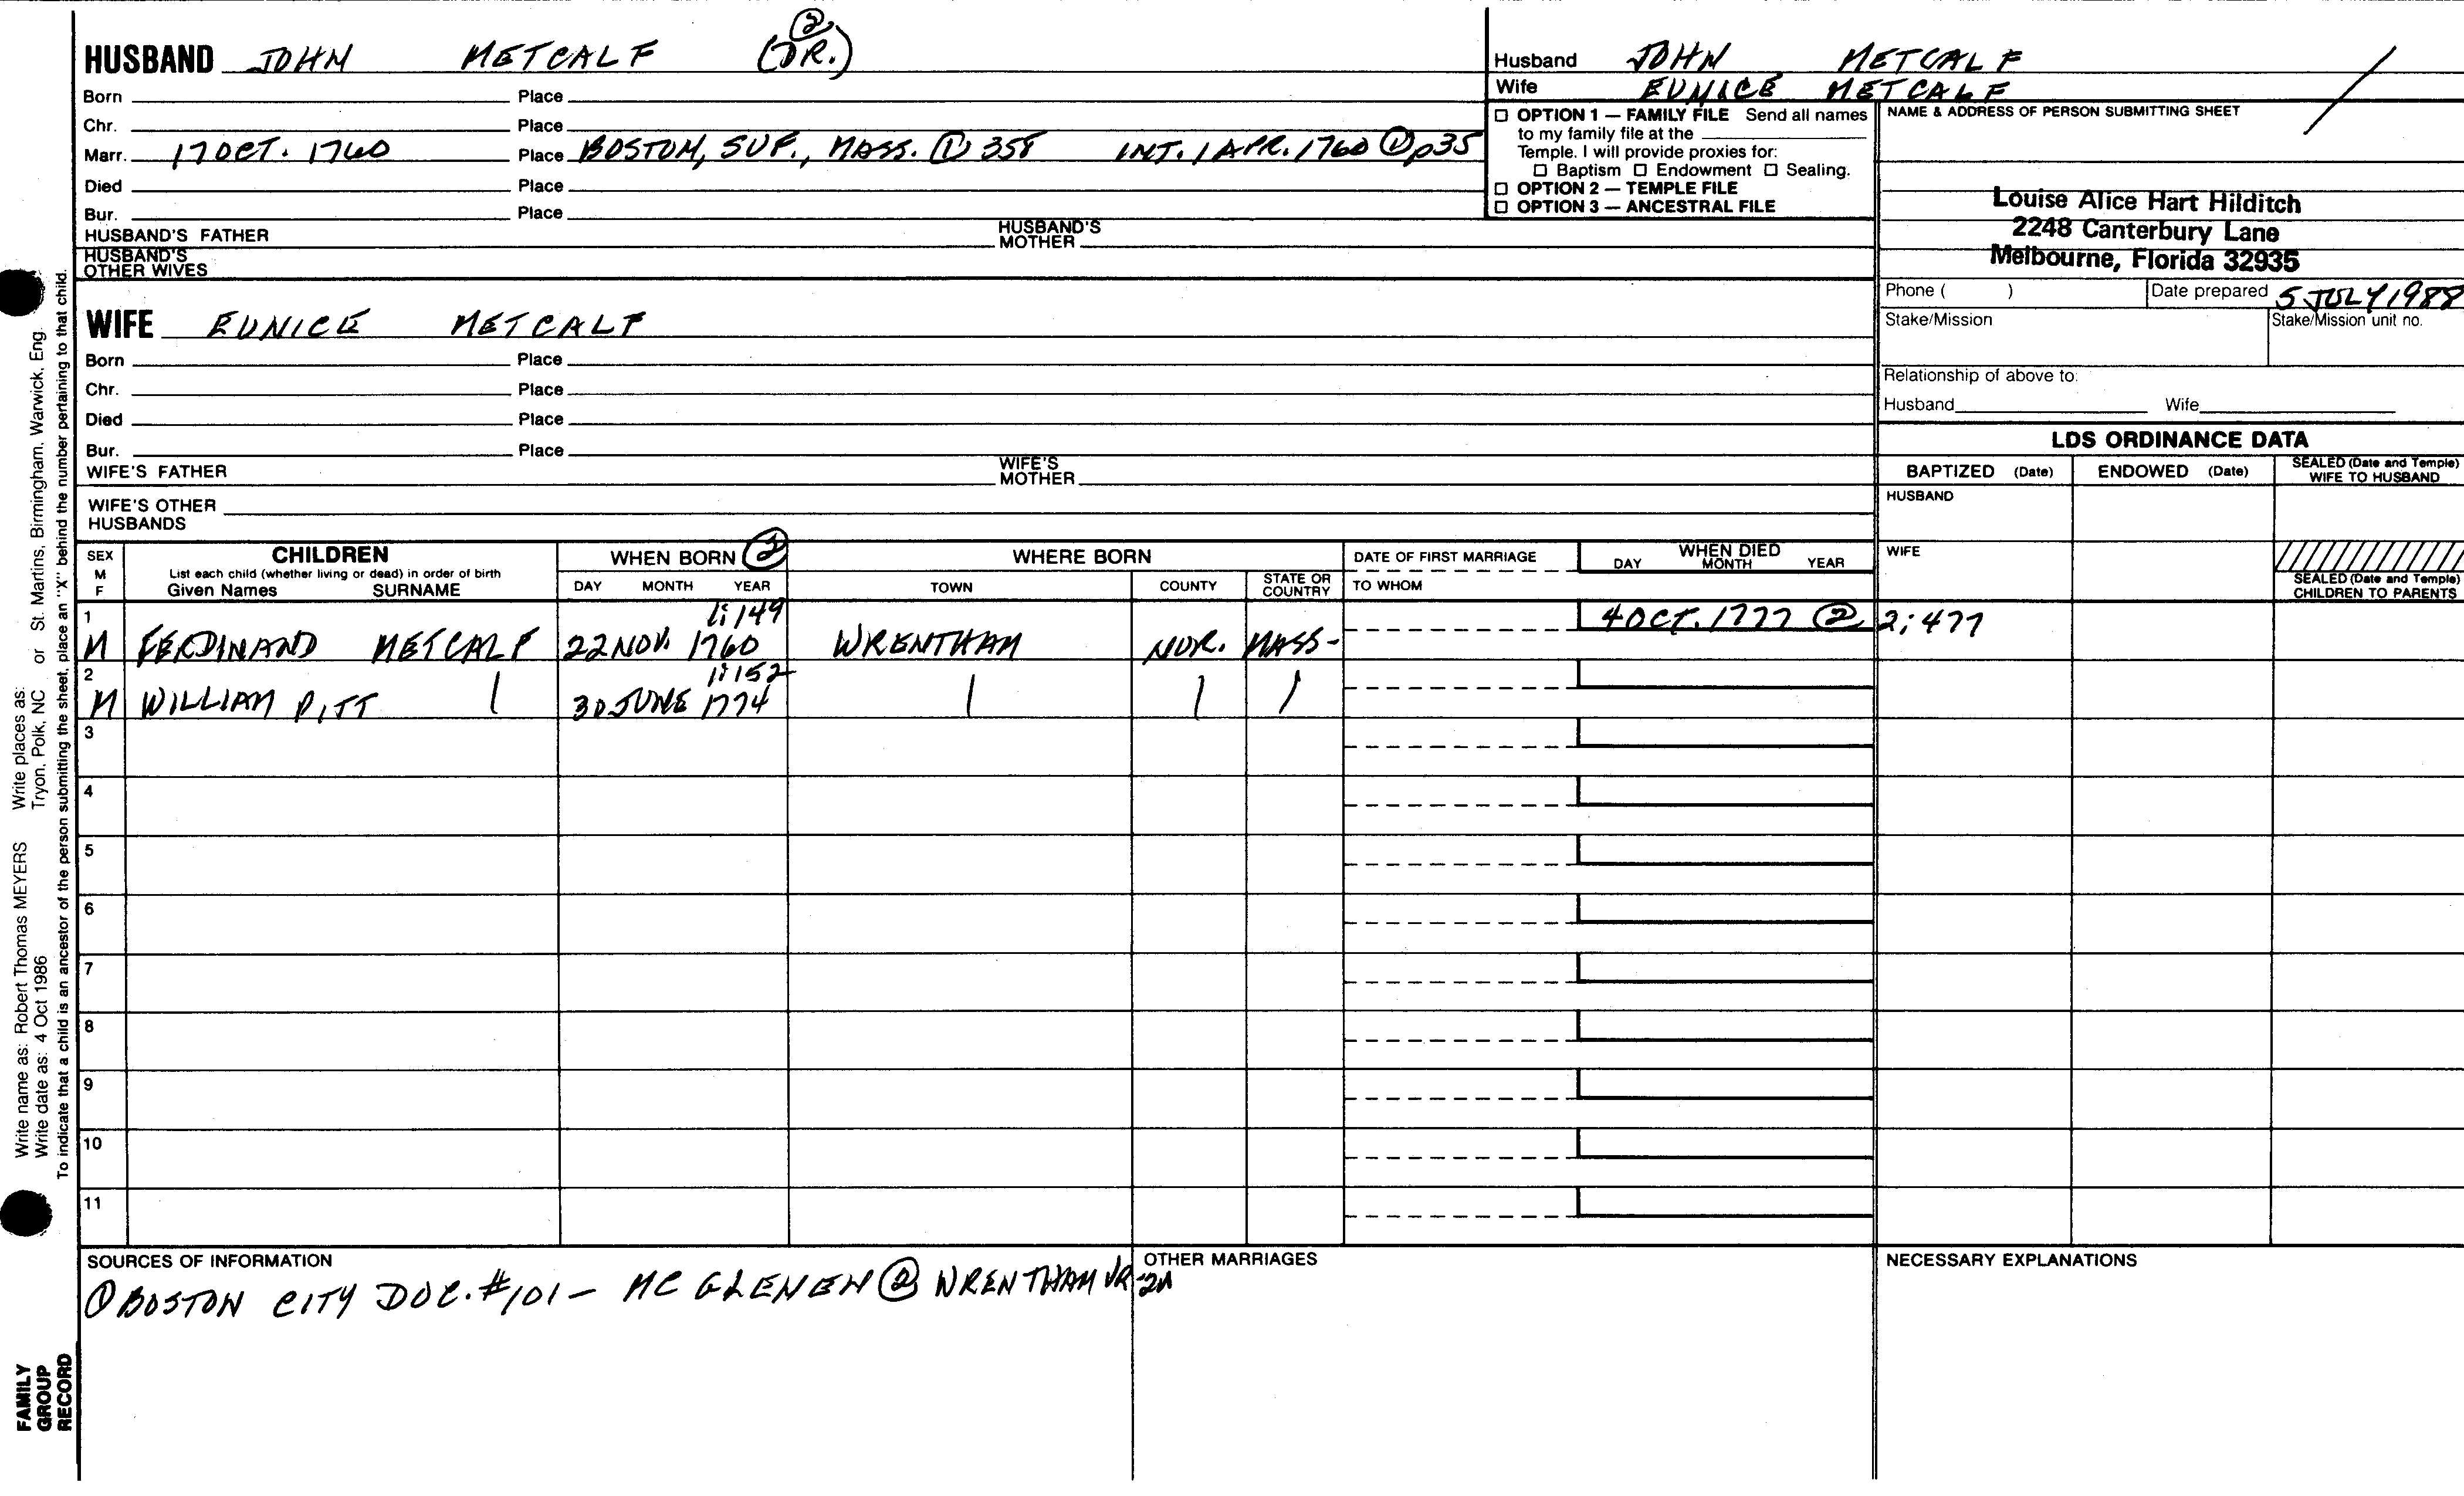 HUSBAND JOHN METCALF (DR.) ②
Born Place
Chr. Place
Marr. 17 OCT. 1760 Place BOSTON, SUF., MASS. ① 358 INT. 1 APR. 1760 ① p35
Died Place
Bur. Place
HUSBAND'S FATHER HUSBAND'S MOTHER
HUSBAND'S OTHER WIVES
WIFE EUNICE METCALF
Born Place
Chr. Place
Died Place
Bur. Place
WIFE'S FATHER WIFE'S MOTHER
WIFE'S OTHER HUSBANDS
Husband JOHN METCALF
Wife EUNICE METCALF
☐ OPTION 1 — FAMILY FILE Send all names
to my family file at the
Temple. I will provide proxies for:
☐ Baptism ☐ Endowment ☐ Sealing.
☐ OPTION 2 — TEMPLE FILE
☐ OPTION 3 — ANCESTRAL FILE
NAME & ADDRESS OF PERSON SUBMITTING SHEET
Louise Alice Hart Hilditch
2248 Canterbury Lane
Melbourne, Florida 32935
Phone ( ) Date prepared 5 JULY 1988
Stake/Mission Stake/Mission unit no.
Relationship of above to:
Husband Wife
LDS ORDINANCE DATA
BAPTIZED (Date) ENDOWED (Date) SEALED (Date and Temple) WIFE TO HUSBAND
HUSBAND
WIFE
SEALED (Date and Temple)
CHILDREN TO PARENTS
SEX M F CHILDREN WHEN BORN ② WHERE BORN DATE OF FIRST MARRIAGE WHEN DIED
List each child (whether living or dead) in order of birth
Given Names SURNAME DAY MONTH YEAR TOWN COUNTY STATE OR COUNTRY TO WHOM DAY MONTH YEAR
1 1:149 4 OCT. 1777 ② 2:477
M FERDINAND METCALF 22 NOV. 1760 WRENTHAM NOR. MASS-
2 1:152
M WILLIAM PITT 30 JUNE 1774
3
4
5
6
7
8
9
10
11
SOURCES OF INFORMATION OTHER MARRIAGES NECESSARY EXPLANATIONS
① BOSTON CITY DOC. #101 - MC GLENEN ② WRENTHAM VR
Write name as: Robert Thomas MEYERS Write places as:
Write date as: 4 Oct 1986 Tryon, Polk, NC or St. Martins, Birmingham, Warwick, Eng
To indicate that a child is an ancestor of the person submitting the sheet, place an "X" behind the number pertaining to that child.
FAMILY
GROUP
RECORD